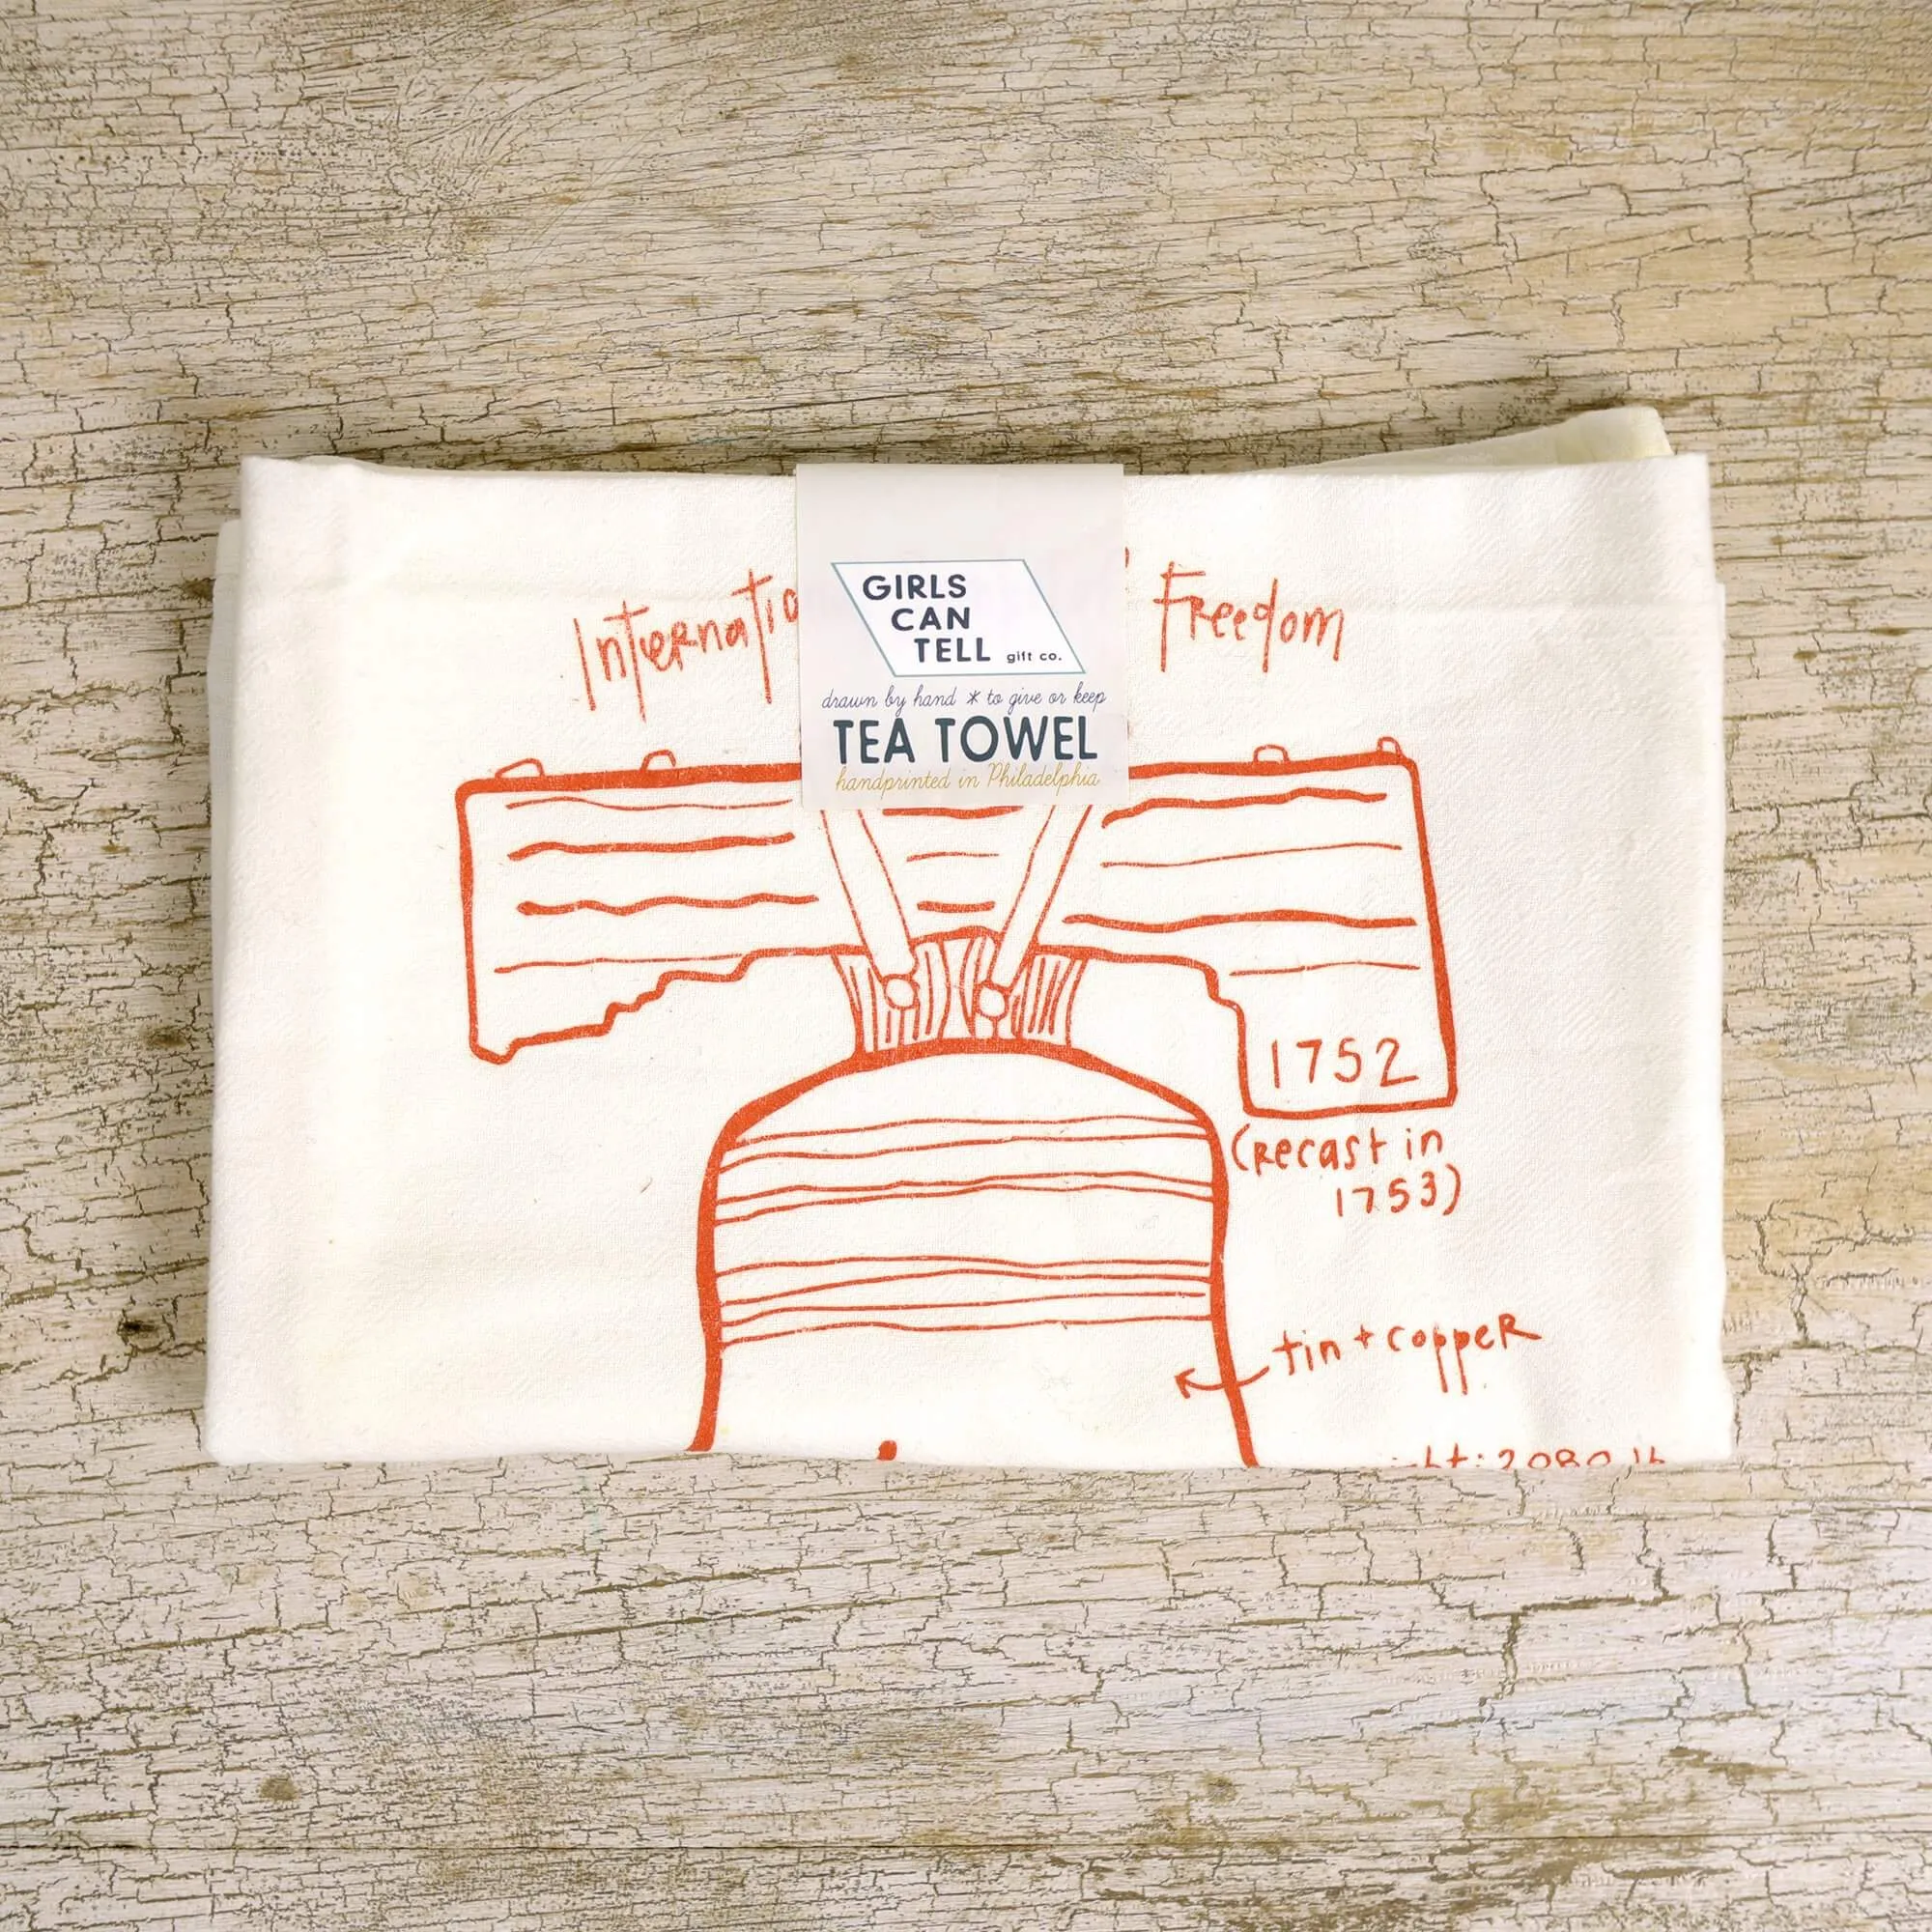 Freedom
GIRLS
CAN
TELL gift co.
drawn by hand * to give or keep
TEA TOWEL
handprinted in Philadelphia
1752
(recast in
1753)
tin + copper